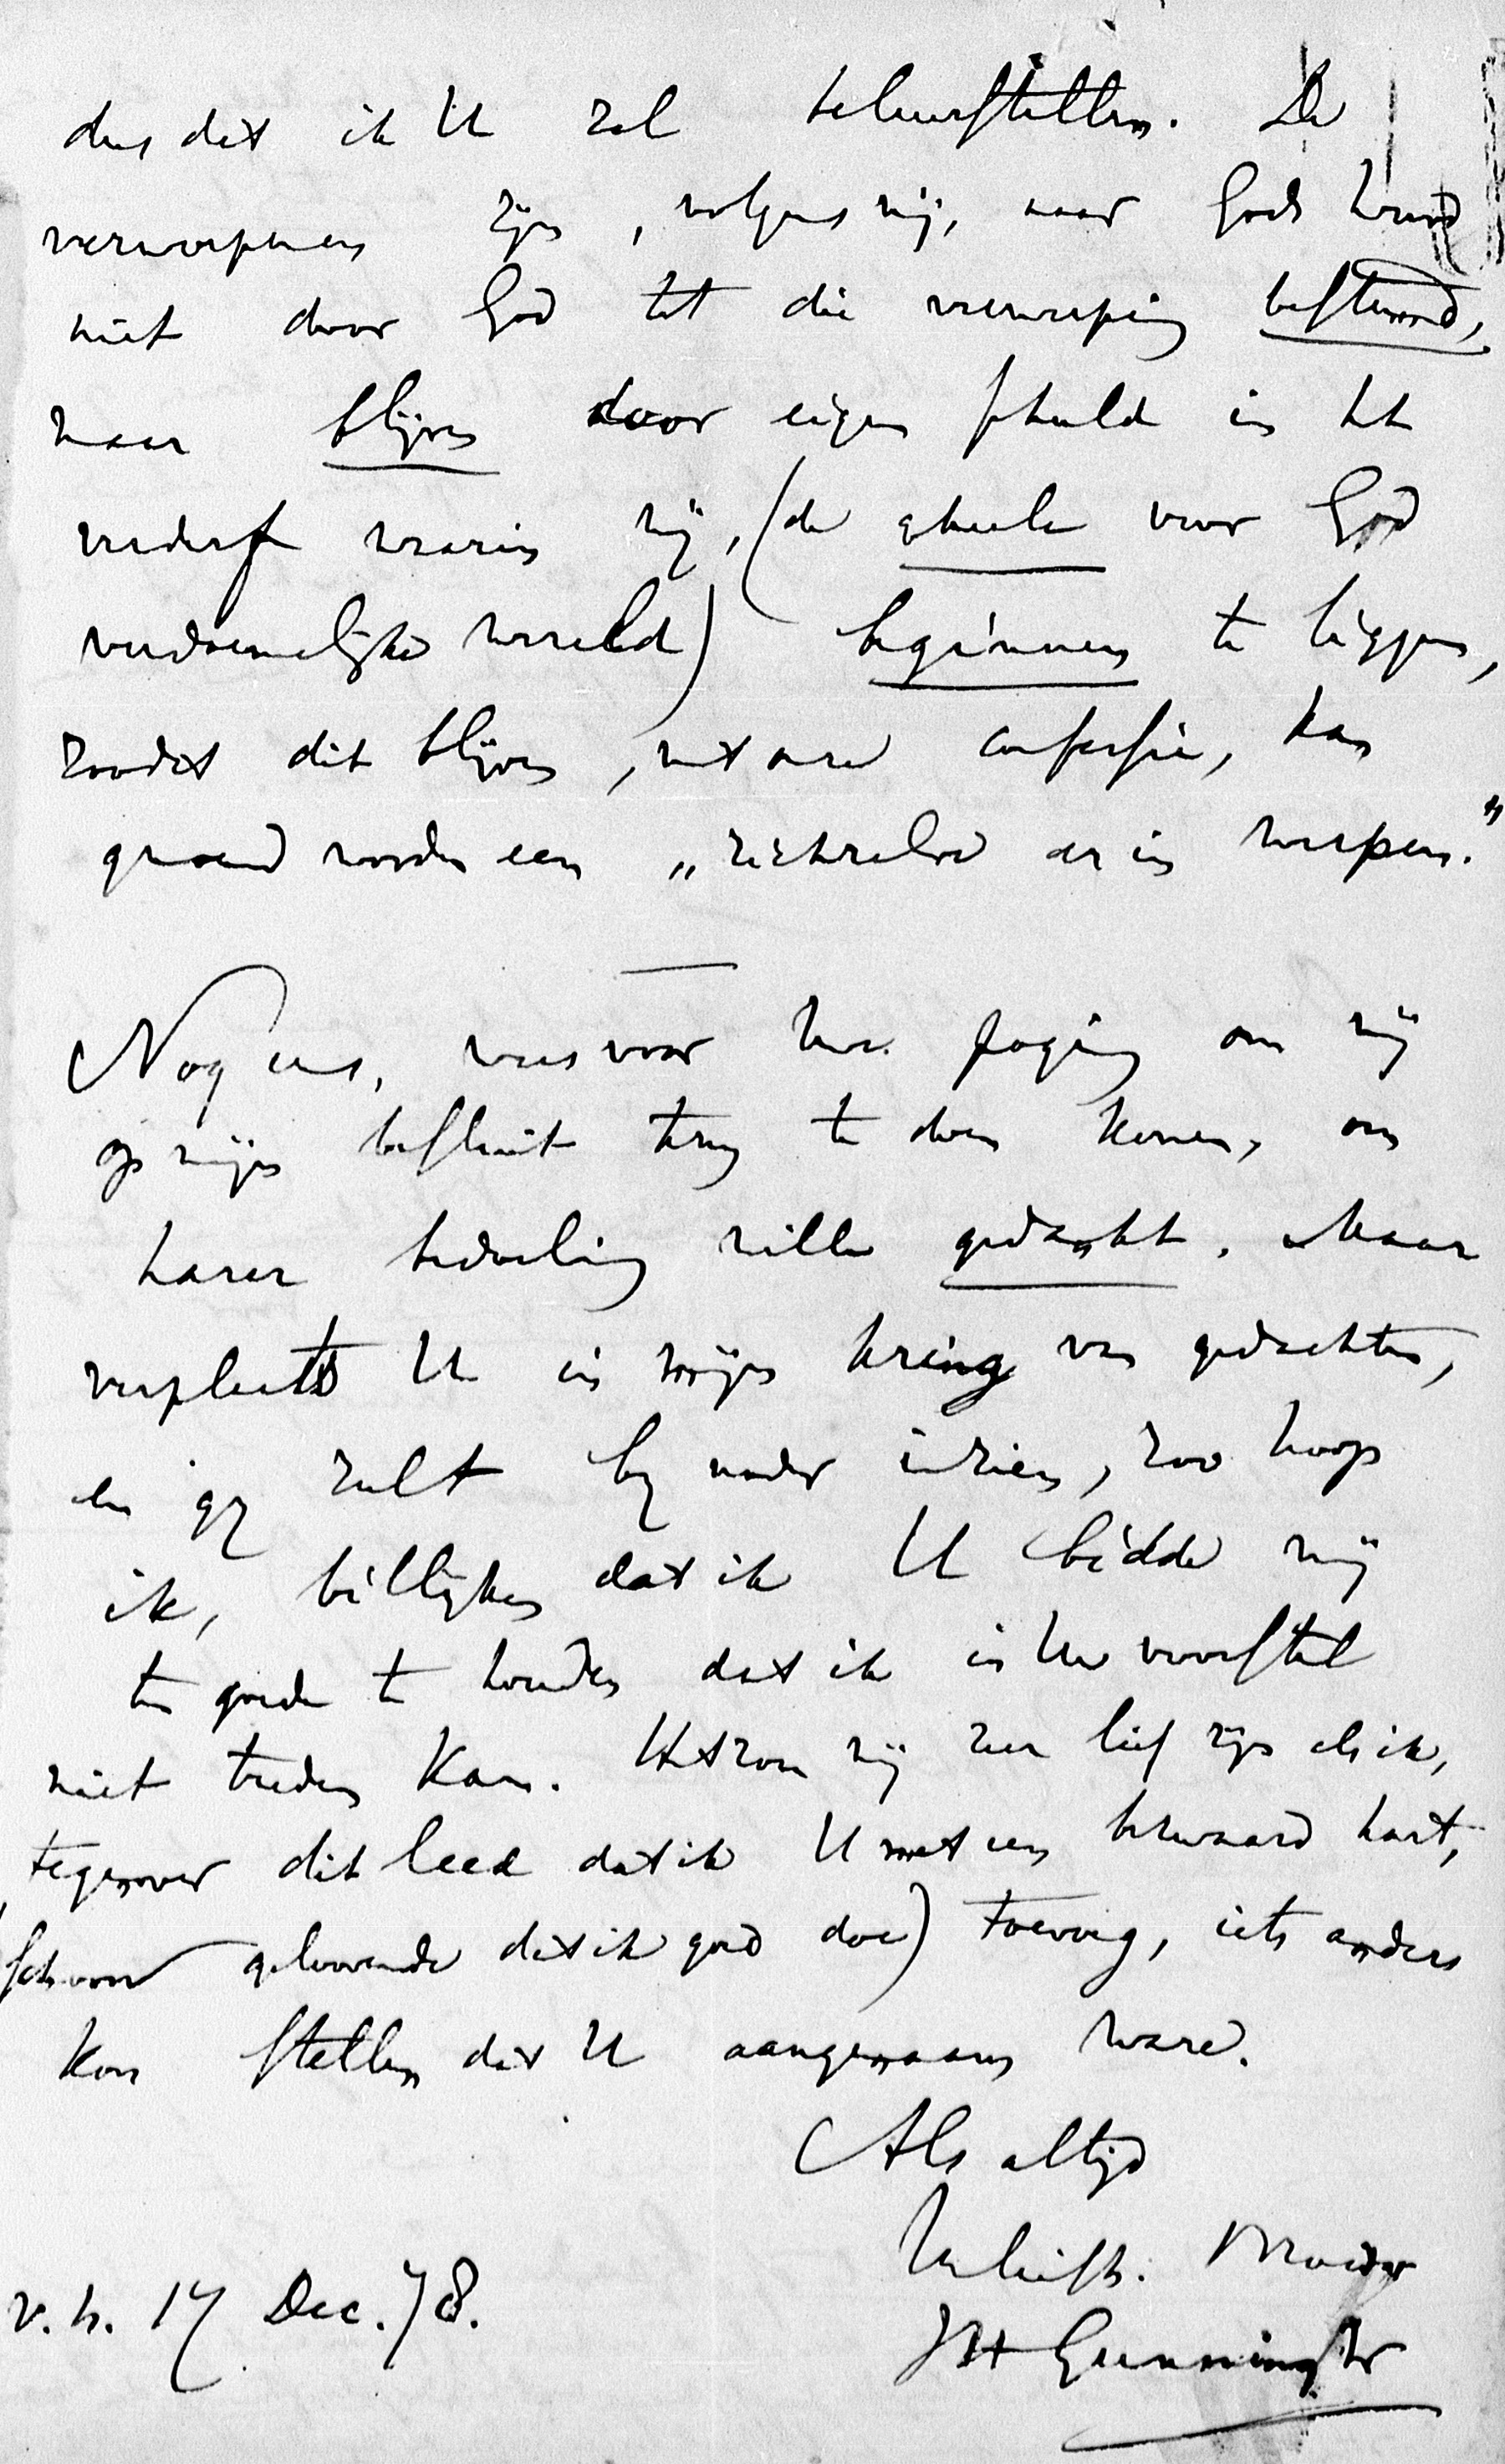 dus dat ik U zal teleurstellen. De
verworpenen zijn, volgens mij, naar Gods Woord
niet door God tot die verwerping bestemd,
maar blijven door eigen schuld in het
verderf waarin wij, (de geheele voor God
verdoemelijke wereld) beginnen te liggen,
zoodat dit blijven, met onze confessie, kan
genoemd worden een „zichzelve er in werpen."
Nog eens, wees voor Uwe poging om mij
op mijn besluit terug te doen komen, om
harer bedoeling wille gedankt. Maar
verplaats U in mijn kring van gedachten,
en gij zult bij nader inzien, zoo hoop
ik, billijken dat ik U bidde mij
ten goede te houden dat ik in Uw voorstel
niet treden kan. Het zou mij zeer lief zijn als ik,
tegenover dit leed dat ik U met een bezwaard hart,
(schoon geloovende dat ik goed doe) toevoeg, iets anders
kon stellen dat U aangenaam ware.
Als altijd
Uw liefh. Broeder
JH Gunning Jr
v. h. 17 Dec. 78.